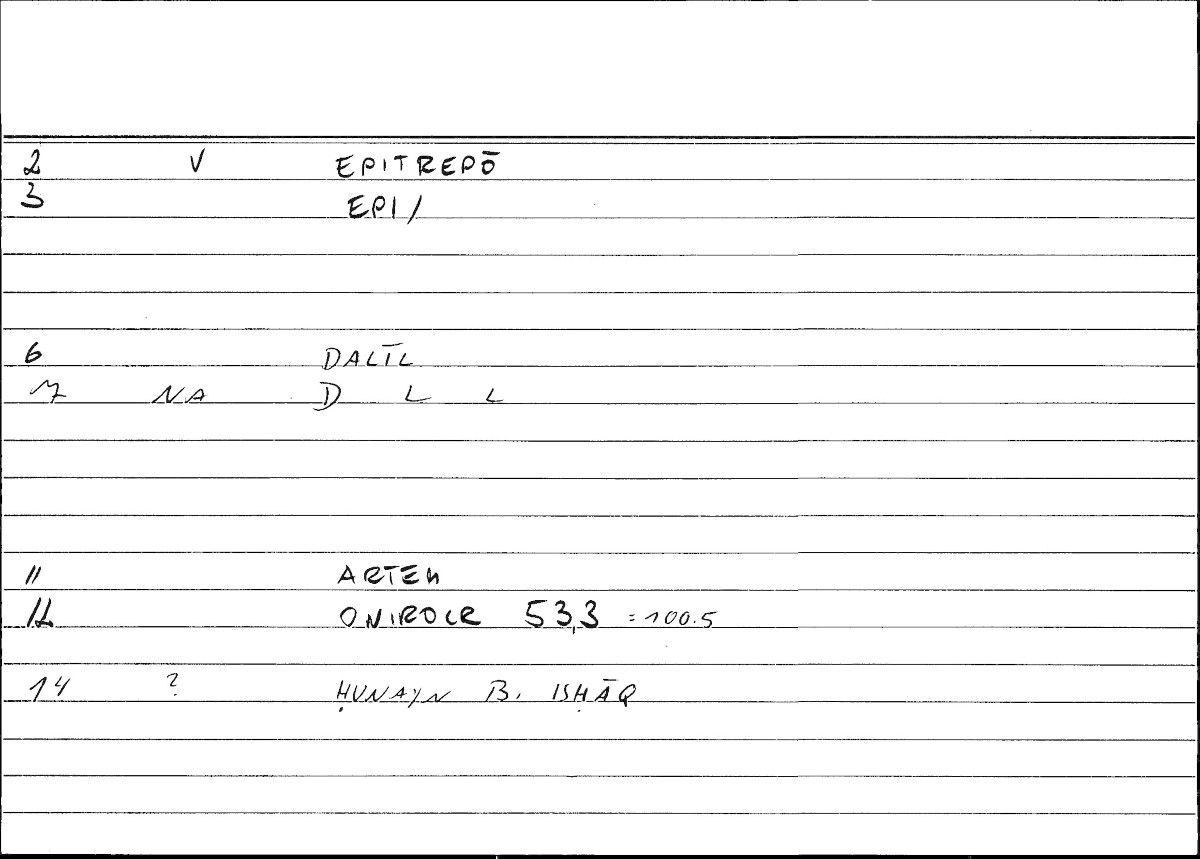 2 V EPITREPŌ
3 EPI/
6 DALĪL
7 NA D L L
11 ARTEM
12 ONIROCR 53,3 = 100.5
14 ? ḤUNAYN B. ISḤĀQ